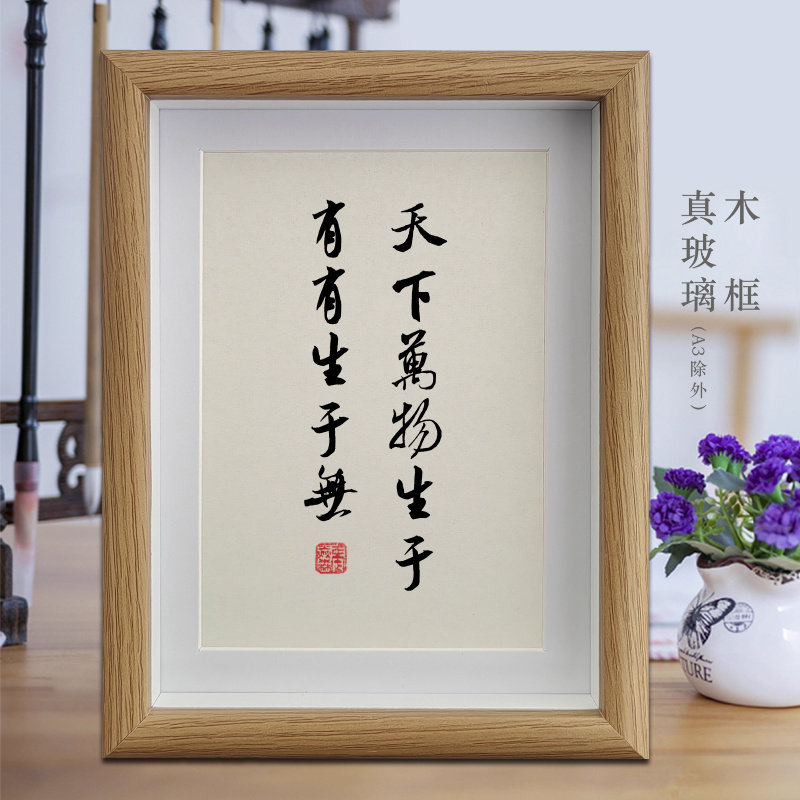 天下萬物生于
有有生于無
木框
真玻璃(A3除外)